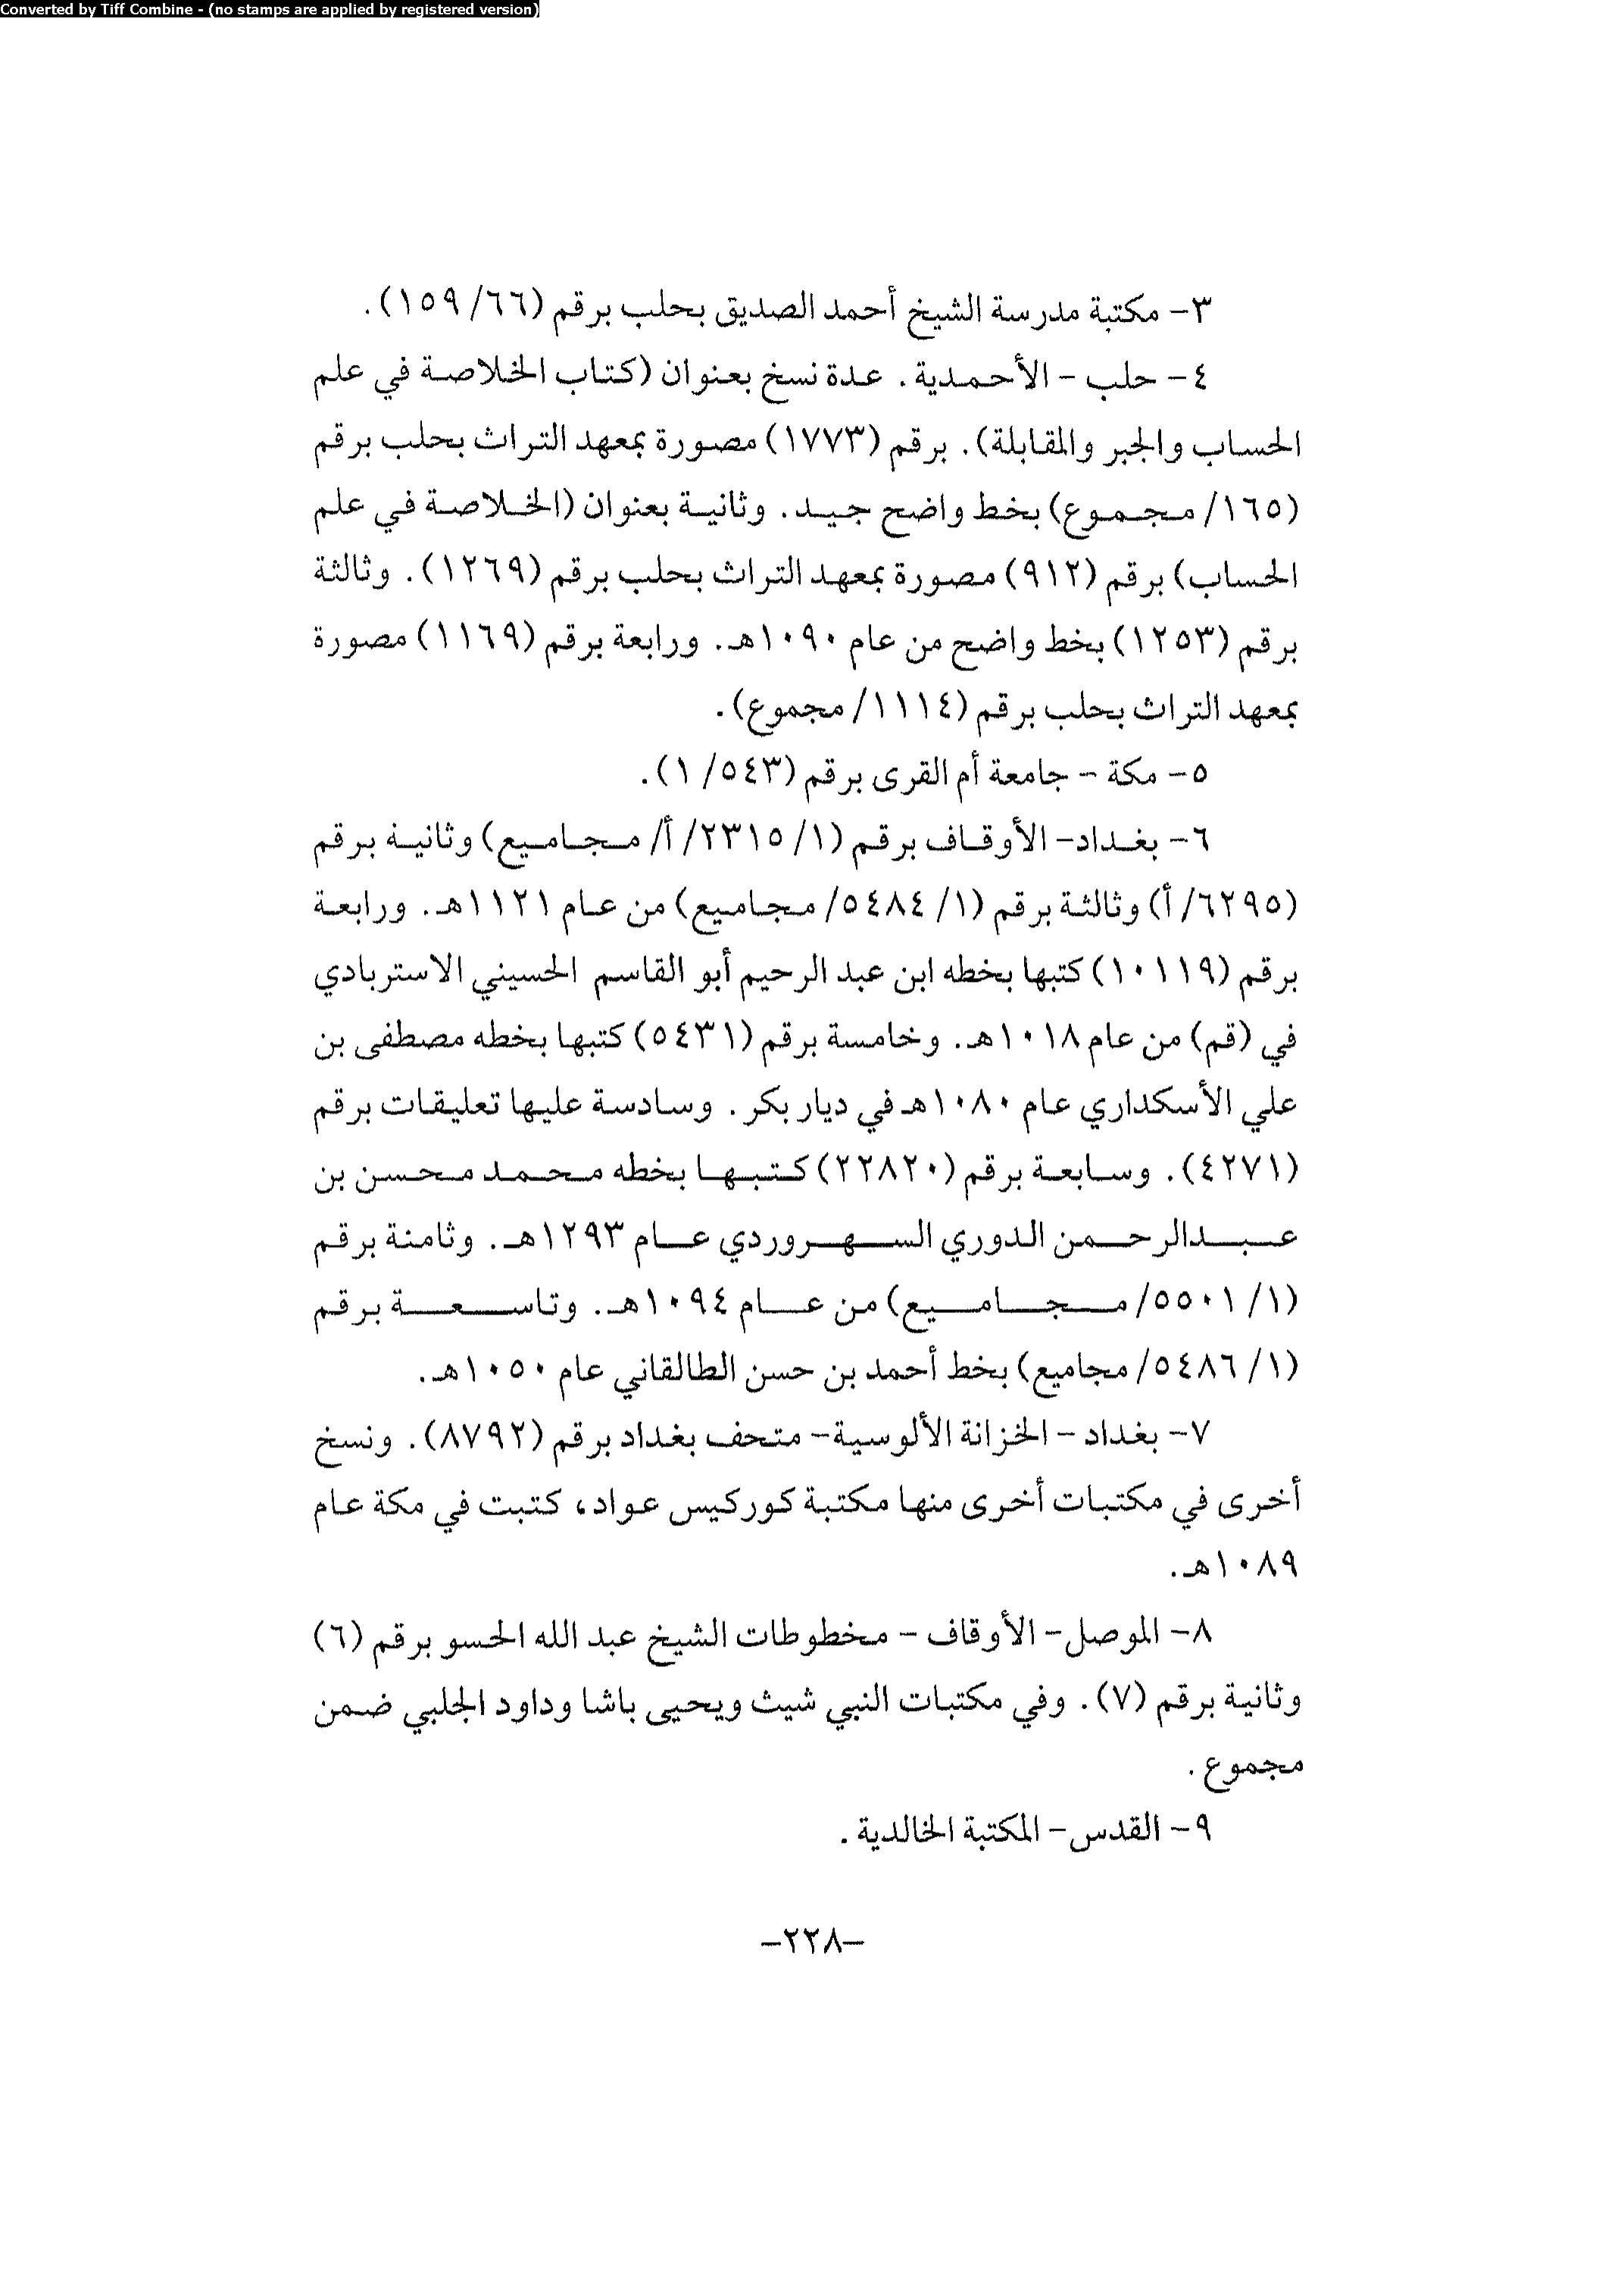 Converted by Tiff Combine - (no stamps are applied by registered version)
٣- مكتبة مدرسة الشيخ أحمد الصديق بحلب برقم (٦٦/ ١٥٩).
٤- حلب - الأحمدية. عدة نسخ بعنوان (كتاب الخلاصة في علم
الحساب والجبر والمقابلة). برقم (١٧٧٣) مصورة بمعهد التراث بحلب برقم
(١٦٥/ مجموع) بخط واضح جيد. وثانية بعنوان (الخلاصة في علم
الحساب) برقم (٩١٢) مصورة بمعهد التراث بحلب برقم (١٢٦٩). وثالثة
برقم (١٢٥٣) بخط واضح من عام ١٠٩٠هـ. ورابعة برقم (١١٦٩) مصورة
بمعهد التراث بحلب برقم (١١١٤/ مجموع).
٥- مكة - جامعة أم القرى برقم (٥٤٣/ ١).
٦- بغداد- الأوقاف برقم (١/ ٢٣١٥/ أ/ مجاميع) وثانية برقم
(٦٢٩٥/ أ) وثالثة برقم (١/ ٥٤٨٤/ مجاميع) من عام ١١٢١هـ. ورابعة
برقم (١٠١١٩) كتبها بخطه ابن عبد الرحيم أبو القاسم الحسيني الاستربادي
في (قم) من عام ١٠١٨هـ. وخامسة برقم (٥٤٣١) كتبها بخطه مصطفى بن
علي الأسكداري عام ١٠٨٠هـ في ديار بكر. وسادسة عليها تعليقات برقم
(٤٢٧١). وسابعة برقم (٢٢٨٢٠) كتبها بخطه محمد محسن بن
عبدالرحمن الدوري السهروردي عام ١٢٩٣هـ. وثامنة برقم
(١/ ٥٥٠١/ مجاميع) من عام ١٠٩٤هـ. وتاسعة برقم
(١/ ٥٤٨٦/ مجاميع) بخط أحمد بن حسن الطالقاني عام ١٠٥٠هـ.
٧- بغداد - الخزانة الألوسية- متحف بغداد برقم (٨٧٩٢). ونسخ
أخرى في مكتبات أخرى منها مكتبة كوركيس عواد، كتبت في مكة عام
١٠٨٩هـ.
٨- الموصل- الأوقاف - مخطوطات الشيخ عبد الله الحسو برقم (٦)
وثانية برقم (٧). وفي مكتبات النبي شيث ويحيى باشا وداود الجلبي ضمن
مجموع.
٩- القدس- المكتبة الخالدية.
-٢٢٨-